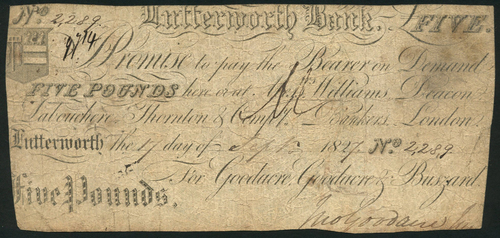 No 2,289. Lutterworth Bank. FIVE.
I Promise to pay the Bearer on Demand
FIVE POUNDS here or at Williams Deacon
Labouchere Thornton & Compy. Bankers London
Lutterworth The 17 day of Sept. 1827. No 2,289
For Goodacre, Goodacre & Buszard
Five Pounds.
Jno Goodacre